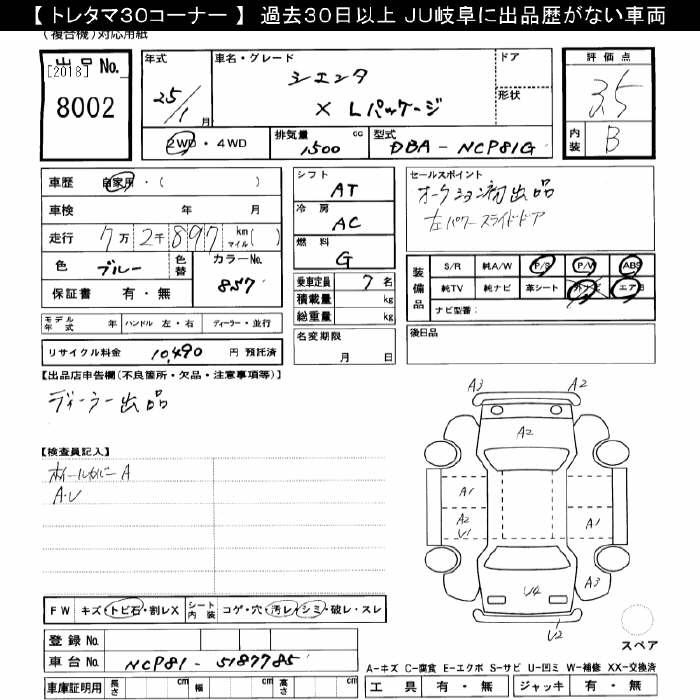 【 トレタマ30コーナー 】 過去30日以上 JU岐阜に出品歴がない車両
(複合機)対応用紙
出品 No.
[2018]
8002
年式
25/1 月
車名・グレード
シエンタ
X Lパッケージ
ドア
形状
評価点
3.5
内装
B
2WD・4WD
排気量 cc
1500
型式
DBA-NCP81G
車歴 自家用・( )
車検 年 月
走行 7万2千897 km マイル( )
色 ブルー
色替
カラーNo.
857
保証書 有・無
モデル年式 年 ハンドル 左・右 ディーラー・並行
リサイクル料金 10,490 円 預託済
シフト
AT
冷房
AC
燃料
G
乗車定員 7 名
積載量 kg
総重量 kg
名変期限
月 日
セールスポイント
オークション初出品
左パワースライドドア
装備品
S/R 純A/W P/S P/W ABS
純TV 純ナビ 革シート 外ナビ エアB
ナビ型番：
後日品
【出品店申告欄(不良箇所・欠品・注意事項等)】
ディーラー出品
【検査員記入】
ホイールカバーA
A・U
A3 A2
A2
A1
A2
U1
A1
A3
U4
U2
スペア
FW キズ・トビ石・割レX
シート内装
コゲ・穴・汚レ・シミ・破レ・スレ
登録 No.
車台 No. NCP81-5187785
車庫証明用 長さ cm 幅 cm 高さ cm
A-キズ C-腐食 E-エクボ S-サビ U-凹ミ W-補修 XX-交換済
工具 有・無 ジャッキ 有・無